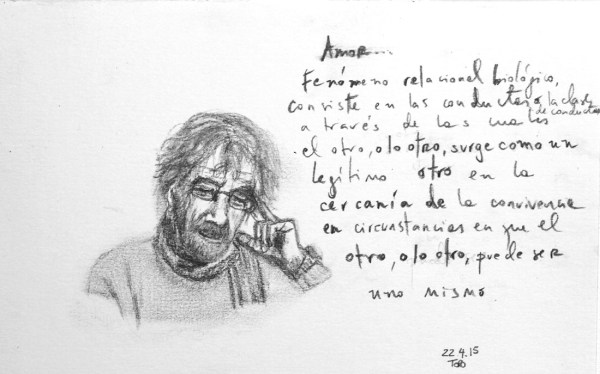 Amor....
Fenómeno relacional biológico,
consiste en las conductas, o la clase de conductas
a través de las cuales
el otro, o lo otro, surge como un
legítimo otro en la
cercanía de la convivencia
en circunstancias en que el
otro, o lo otro, puede ser
uno mismo
22.4.15